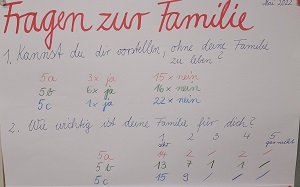 Mai 2022
Fragen zur Familie
1. Kannst du dir vorstellen, ohne deine Familie
zu leben?
5a 3x ja 15x nein
5b 6x ja 16x nein
5c 1x ja 22x nein
2. Wie wichtig ist deine Familie für dich?
1 2 3 4 5
sehr gar nicht
5a 14 2 / 2 /
5b 13 7 1 1 /
5c 15 9 / / /